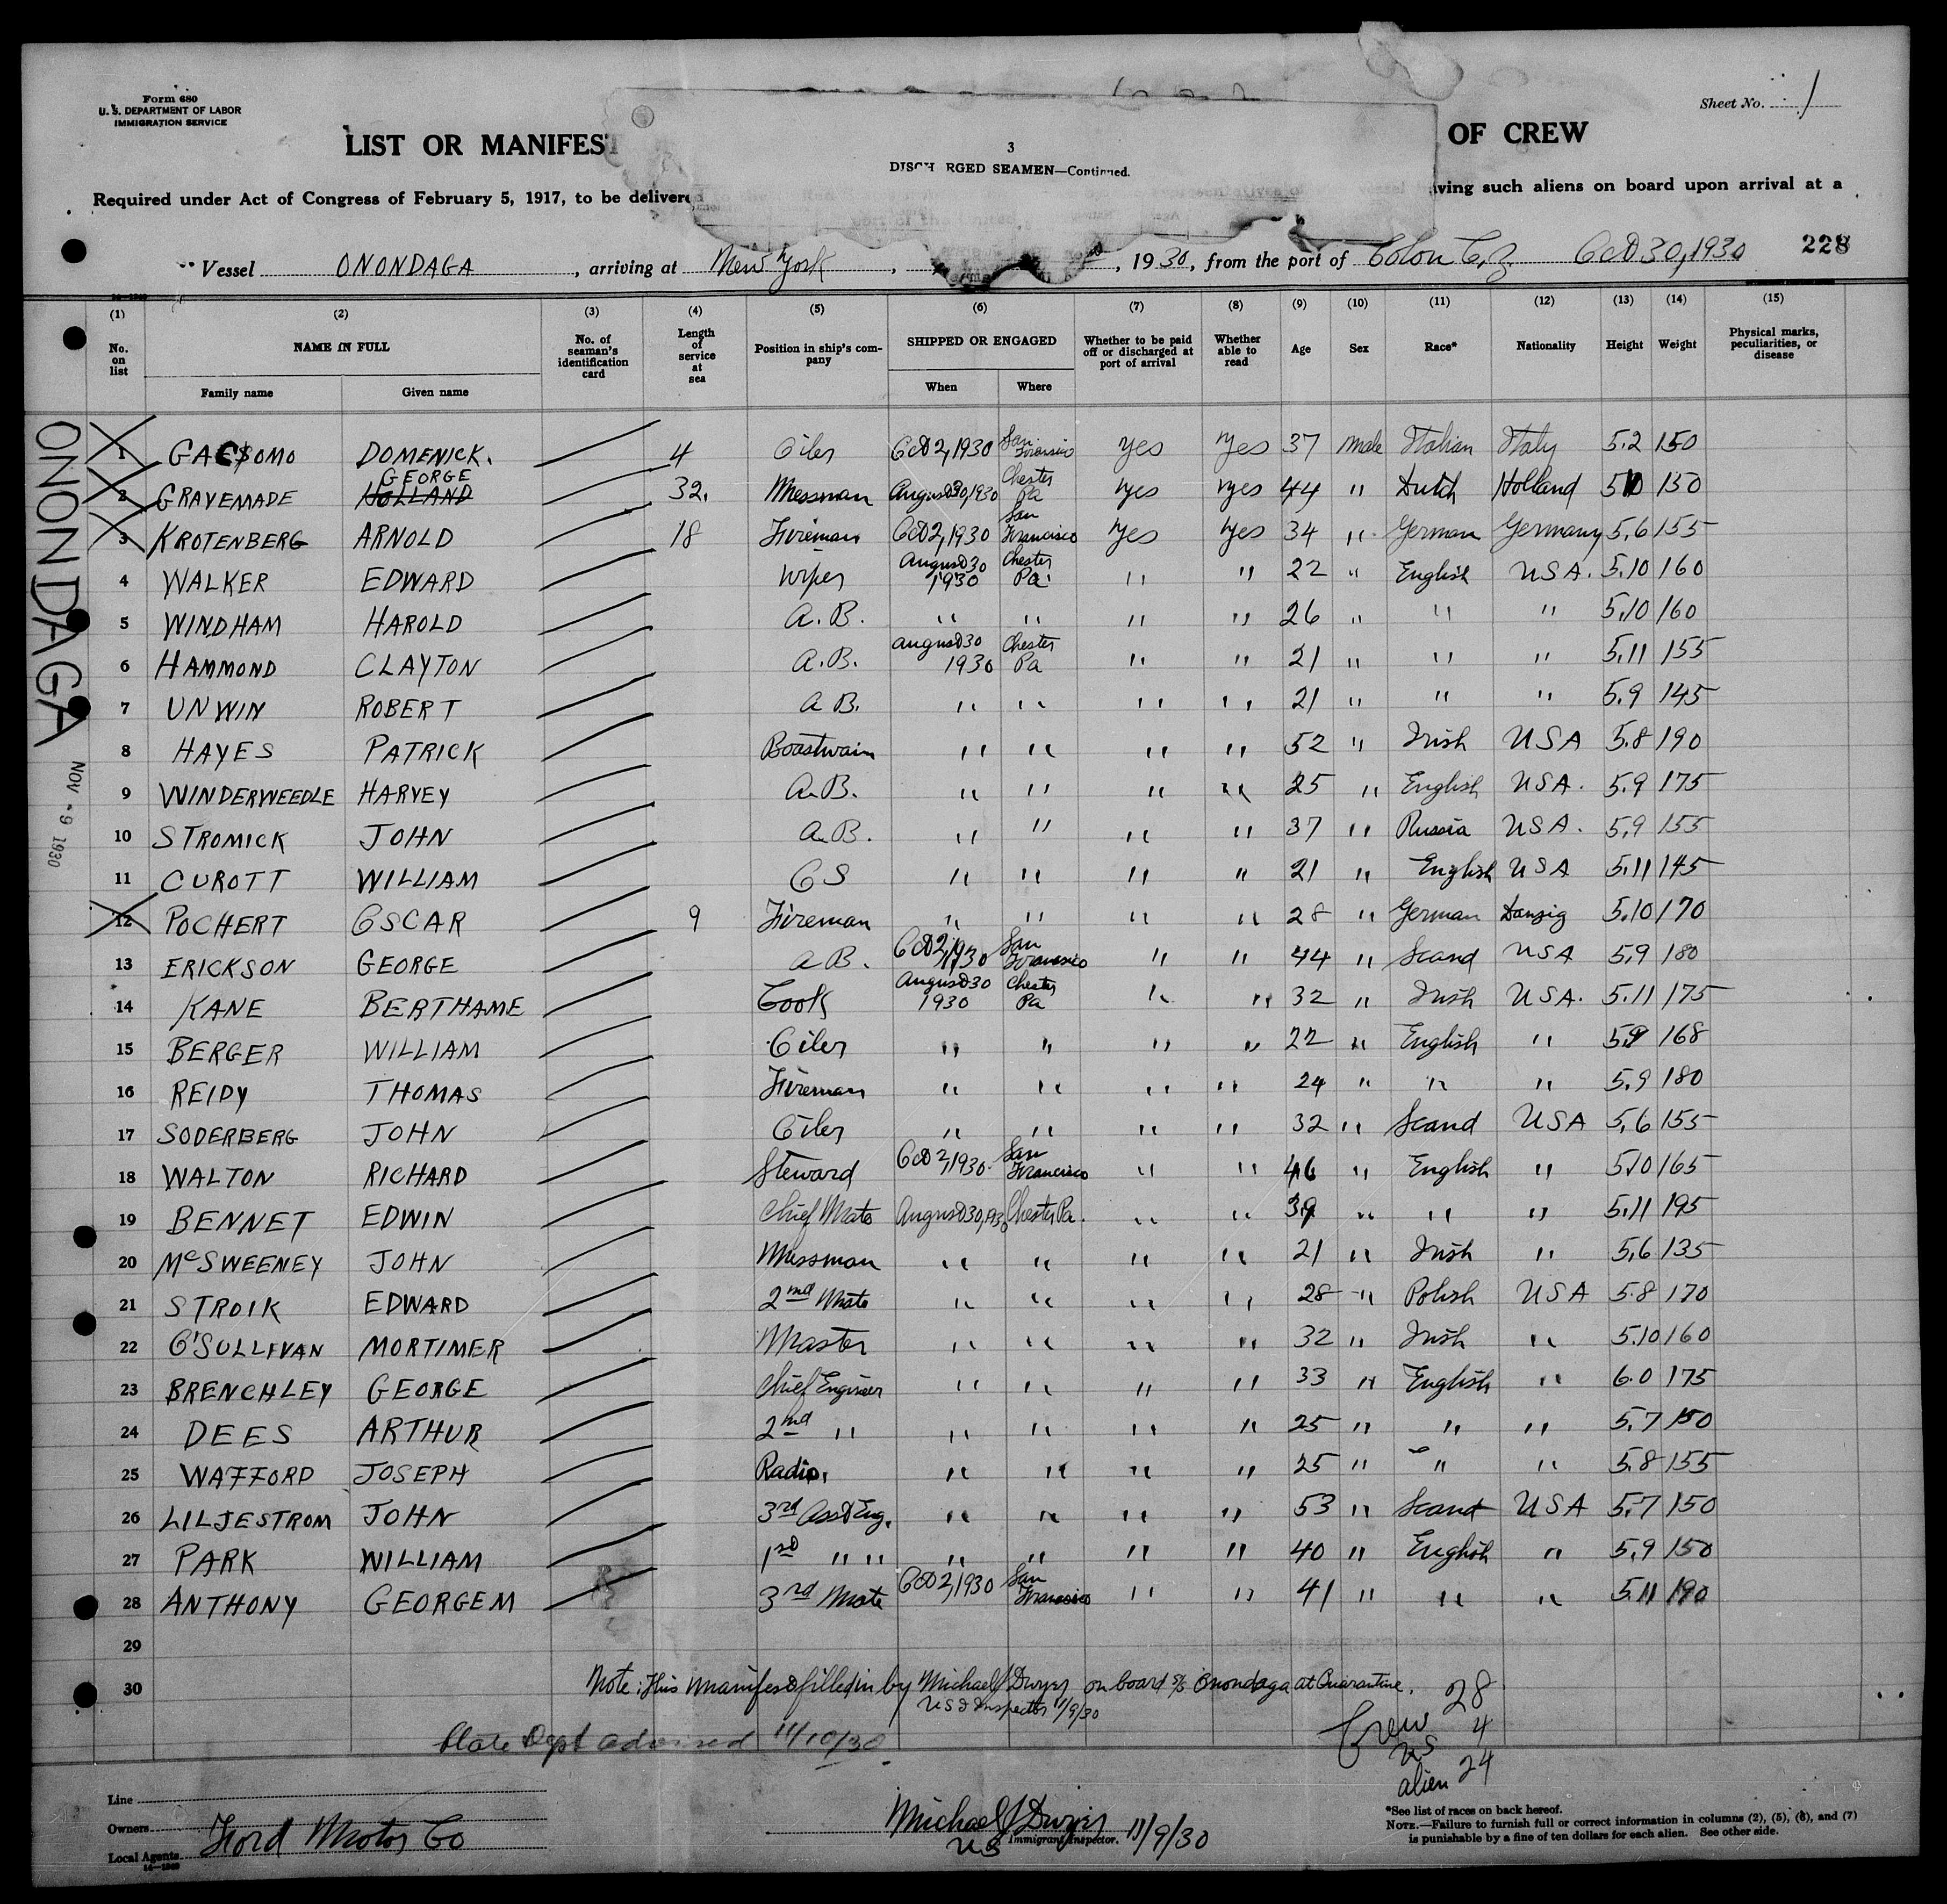 Form 680
U. S. DEPARTMENT OF LABOR
IMMIGRATION SERVICE
Sheet No. 1
LIST OR MANIFEST OF CREW
3
DISCH RGED SEAMEN—Continued.
Required under Act of Congress of February 5, 1917, to be delivered aving such aliens on board upon arrival at a
Vessel ONONDAGA, arriving at New York, 1930, from the port of Colon C.Z. Oct 30, 1930 228
(1) (2) (3) (4) (5) (6) (7) (8) (9) (10) (11) (12) (13) (14) (15)
No. on list NAME IN FULL No. of seaman's identification card Length of service at sea Position in ship's company SHIPPED OR ENGAGED Whether to be paid off or discharged at port of arrival Whether able to read Age Sex Race* Nationality Height Weight Physical marks, peculiarities, or disease
Family name Given name When Where
ONONDAGA
NOV -9 1930
1 DOMENICK. 4 Oiler Oct 2, 1930 San Francisco Yes Yes 37 male Italian Italy 5.2 150
2 GRAVEMADE HOLLAND GEORGE 32. Messman August 30, 1930 Chester Pa Yes Yes 44 " Dutch Holland 510 150
3 KROTENBERG ARNOLD 18 Fireman Oct 2, 1930 San Francisco Yes Yes 34 " German Germany 5,6 155
4 WALKER EDWARD Wiper August 30 1930 Chester Pa. " " 22 " English USA. 5.10 160
5 WINDHAM HAROLD A.B. " " " " 26 " " " 5,10 160
6 HAMMOND CLAYTON A.B. August 30 1930 Chester Pa " " 21 " " " 5,11 155
7 UNWIN ROBERT A B. " " " " 21 " " " 5,9 145
8 HAYES PATRICK Boastwain " " " " 52 " Irish USA 5.8 190
9 WINDERWEEDLE HARVEY A.B. " " " " 25 " English USA. 5.9 175
10 STROMICK JOHN A.B. " " " " 37 " Russia USA. 5,9 155
11 CUROTT WILLIAM OS " " " " 21 " English USA 5,11 145
12 POCHERT OSCAR 9 Fireman " " " " 28 " German Danzig 5.10 170
13 ERICKSON GEORGE A B. Oct 2, 1930 San Francisco " " 44 " Scand USA 5,9 180
14 KANE BERTHAME Cook August 30 1930 Chester Pa " " 32 " Irish USA. 5.11 175
15 BERGER WILLIAM Oiler " " " " 22 " English " 5,9 168
16 REIDY THOMAS Fireman " " " " 24 " " " 5,9 180
17 SODERBERG JOHN Oiler " " " " 32 " Scand USA 5,6 155
18 WALTON RICHARD Steward Oct 2, 1930. San Francisco " " 46 " English " 5.10 165
19 BENNET EDWIN Chief Mate August 30, 1930 Chester Pa. " " 39 " " " 5,11 195
20 McSWEENEY JOHN Messman " " " " 21 " Irish " 5,6 135
21 STROIK EDWARD 2nd Mate " " " " 28 " Polish USA 5.8 170
22 O'SULLIVAN MORTIMER Master " " " " 32 " Irish " 5.10 160
23 BRENCHLEY GEORGE Chief Engineer " " " " 33 " English " 6.0 175
24 DEES ARTHUR 2nd " " " " " 25 " " " 5,7 150
25 WAFFORD JOSEPH Radio. " " " " 25 " " " 5.8 155
26 LILJESTROM JOHN 3rd Asst Eng. " " " " 53 " Scand USA 5,7 150
27 PARK WILLIAM 1st " " " " " " 40 " English " 5,9 150
28 ANTHONY GEORGE M 3rd Mate Oct 2, 1930 San Francisco " " 41 " " " 5.11 190
29
30
Note: This manifest filled in by Michael J Dwyer on board S/S Onondaga at Quarantine.
US I Inspector 11/9/30
State Dept advised 11/10/30
28
Crew 4
US
alien 24
Line
Owners Ford Motor Co
Local Agents
14—1240
Michael J Dwyer
US Immigrant Inspector. 11/9/30
*See list of races on back hereof.
NOTE.—Failure to furnish full or correct information in columns (2), (5), (6), and (7)
is punishable by a fine of ten dollars for each alien. See other side.